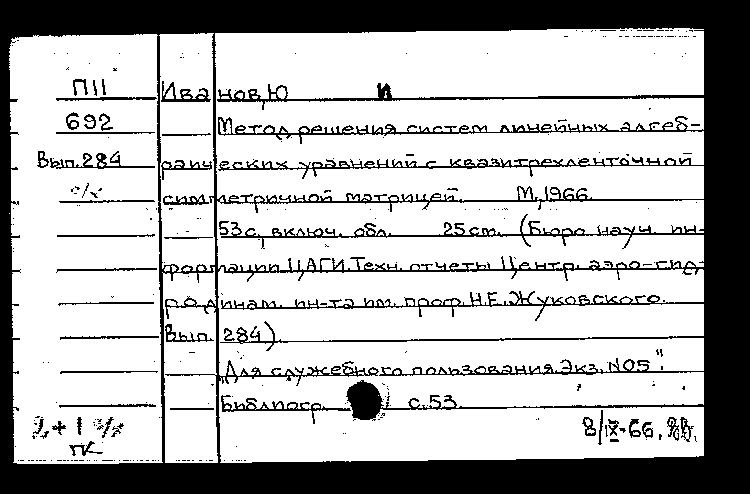 ПII Иванов, Ю И
692 Метод решения систем линейных алгеб-
Вып. 284 раических уравнений с квазитрехленточной
симметричной матрицей. М., 1966.
53 с, включ. обл. 25 см. (Бюро науч. ин-
формации ЦАГИ. Техн. отчеты Центр. аэро-гид-
родинам. ин-та им. проф. Н.Е. Жуковского.
Вып. 284).
„Для служебного пользования. Экз. N05".
Библиогр. с. 53.
2+1
ПК
8/IX-66.